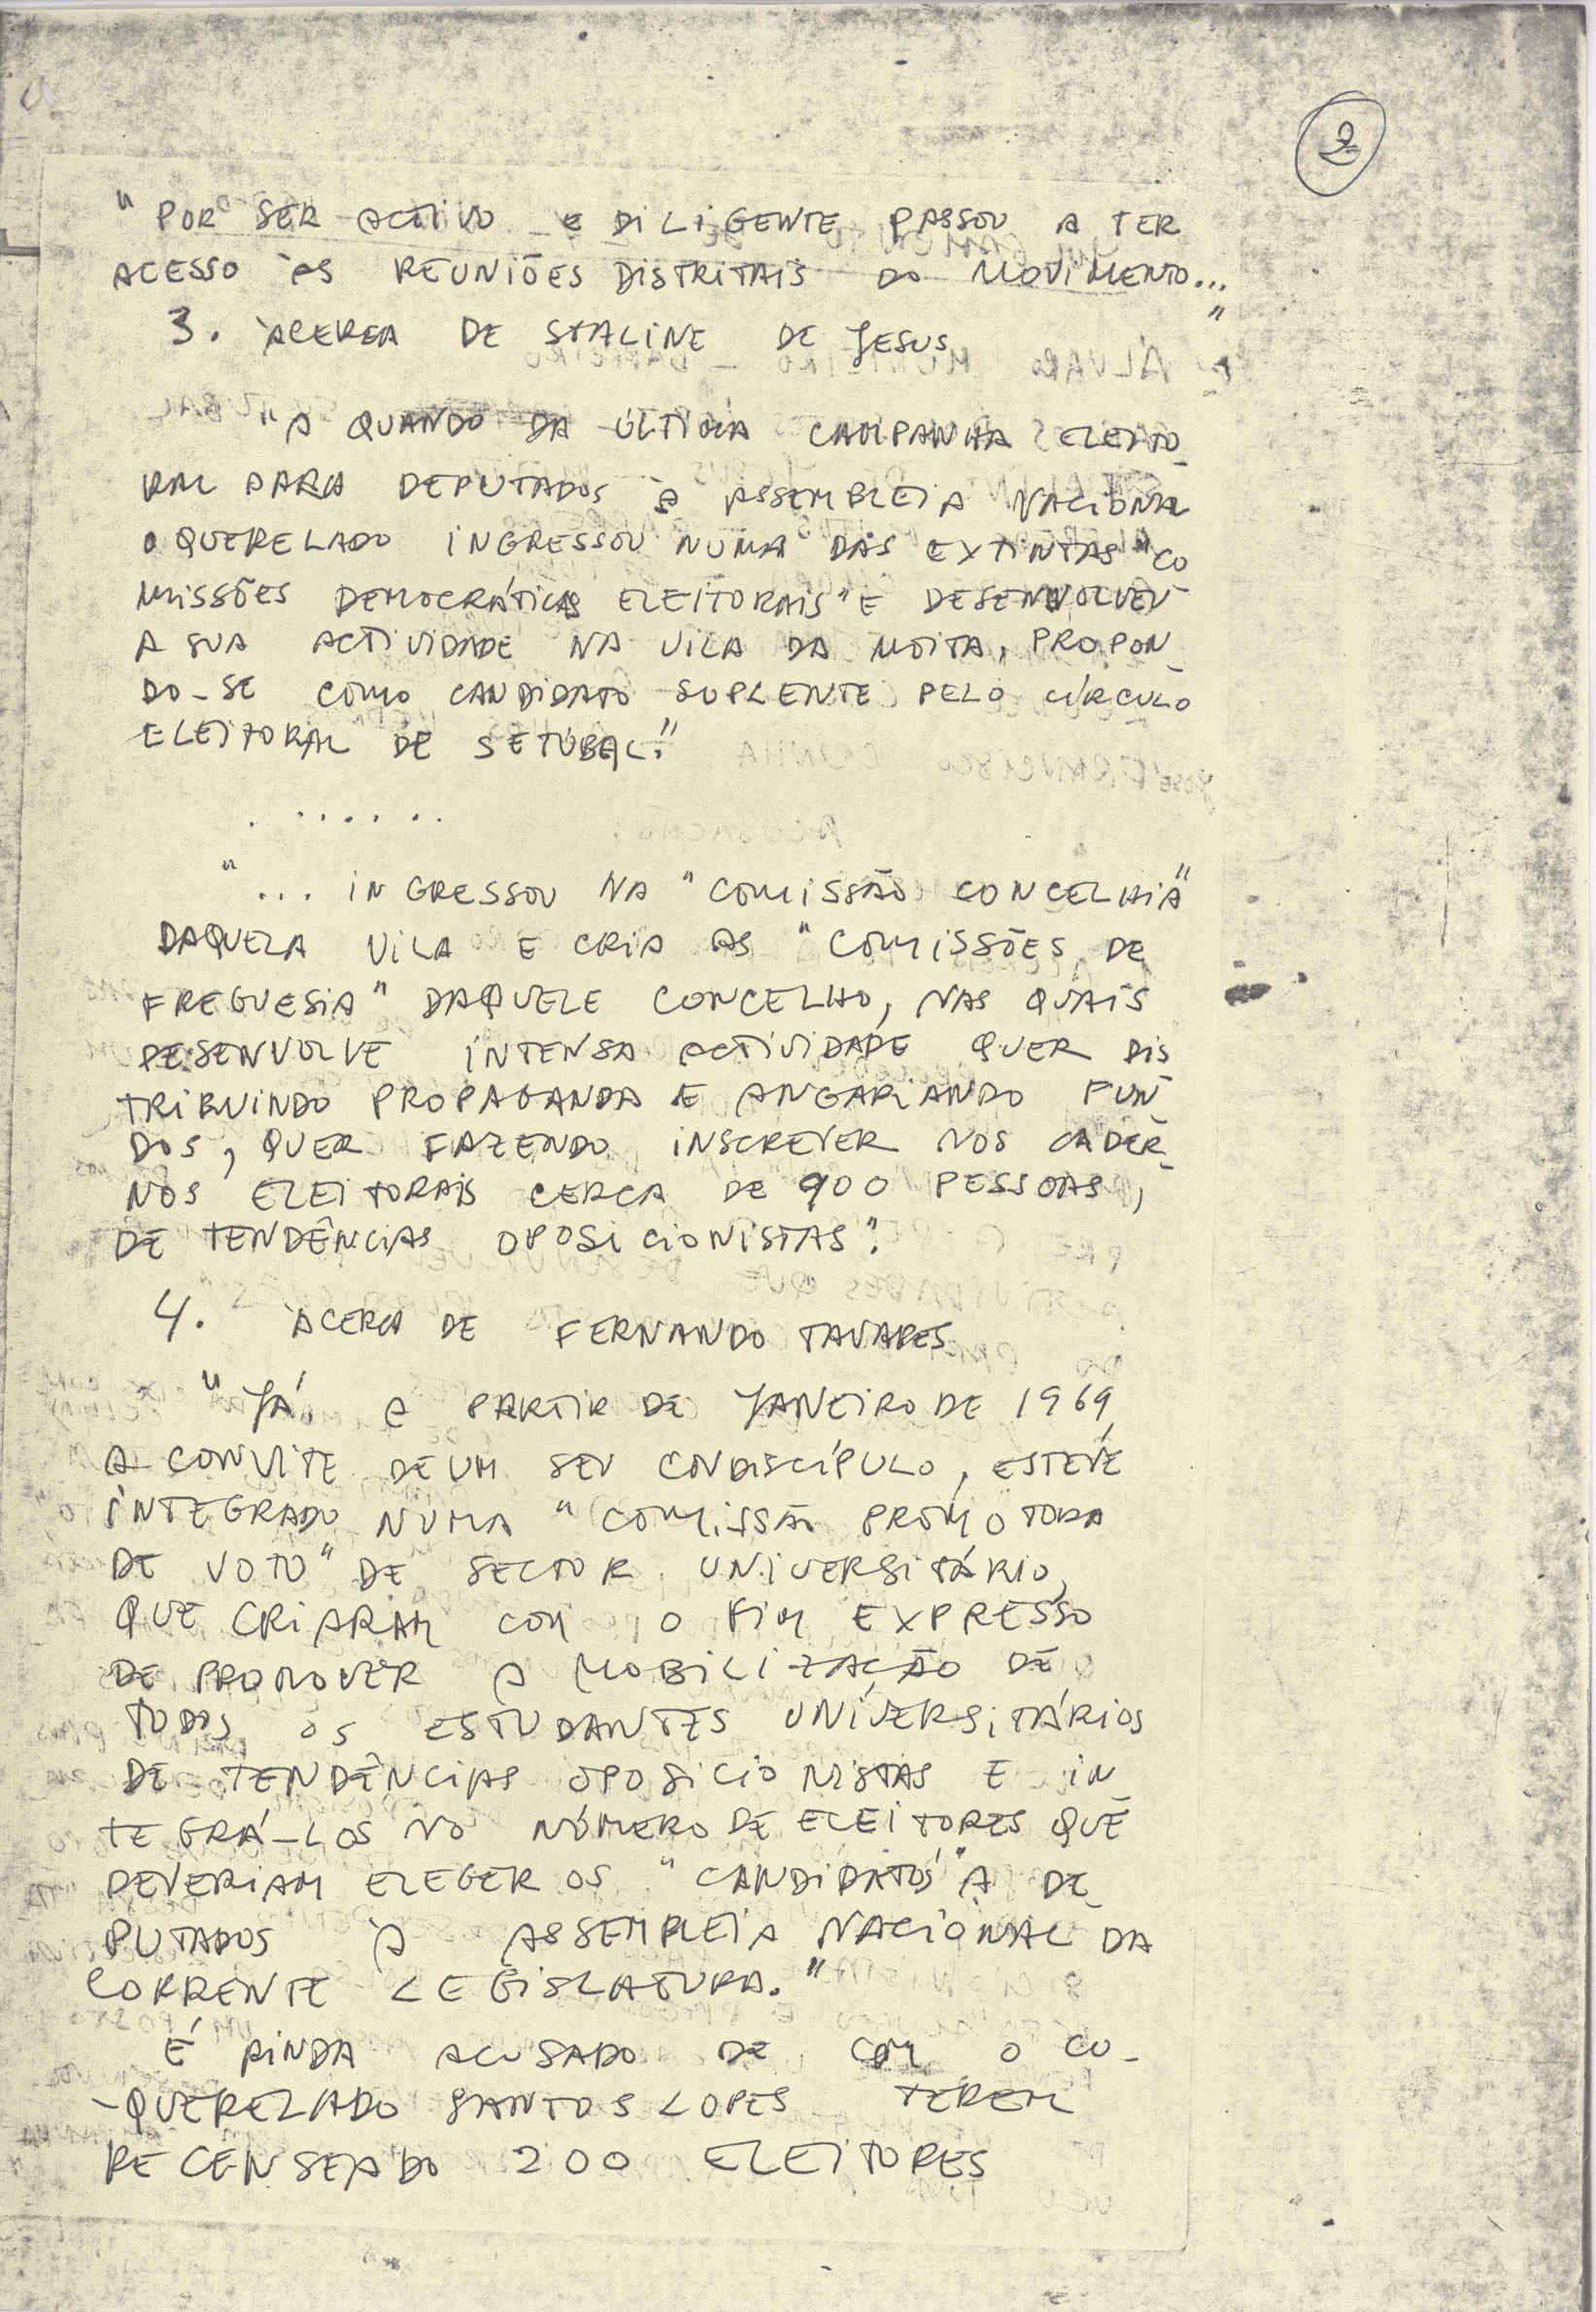 2
" POR SER ACTIVO e DILIGENTE PASSOU A TER
ACESSO ÀS REUNIÕES DISTRITAIS DO MOVIMENTO..."
3. ÀCERCA DE STALINE DE JESUS
"A QUANDO DA ÚLTIMA CAMPANHA ELEITO_
RAL PARA DEPUTADOS À ASSEMBLEIA NACIONAL
O QUERELADO INGRESSOU NUMA DAS EXTINTAS "CO_
MISSÕES DEMOCRÁTICAS ELEITORAIS" E DESENVOLVEU
A SUA ACTIVIDADE NA VILA DA MOITA, PROPON_
DO-SE COMO CANDIDATO SUPLENTE PELO CÍRCULO
ELEITORAL DE SETÚBAL."
.......
"... INGRESSOU NA "COMISSÃO CONCELHIA"
DAQUELA VILA E CRIA AS "COMISSÕES DE
FREGUESIA" DAQUELE CONCELHO, NAS QUAIS
DESENVOLVE INTENSA ACTIVIDADE QUER DIS_
TRIBUINDO PROPAGANDA E ANGARIANDO FUN_
DOS, QUER FAZENDO INSCREVER NOS CADER_
NOS ELEITORAIS CERCA DE 900 PESSOAS,
DE TENDÊNCIAS OPOSICIONISTAS".
4. ÀCERCA DE FERNANDO TAVARES
"JÁ A PARTIR DE JANEIRO DE 1969,
A CONVITE DE UM SEU CONDISCÍPULO, ESTEVE
INTEGRADO NUMA "COMISSÃO PROMOTORA
DE VOTO" DE SECTOR UNIVERSITÁRIO,
QUE CRIARAM COM O FIM EXPRESSO
DE PROMOVER A MOBILIZAÇÃO DE
TODOS OS ESTUDANTES UNIVERSITÁRIOS
DE TENDÊNCIAS OPOSICIONISTAS E IN_
TEGRÁ-LOS NO NÚMERO DE ELEITORES QUE
DEVERIAM ELEGER OS "CANDIDATOS" A DE_
PUTADOS À ASSEMBLEIA NACIONAL DA
CORRENTE LEGISLATURA."
É AINDA ACUSADO DE COM O CO-
-QUERELADO SANTOS LOPES TEREM
RECENSEADO 200 ELEITORES